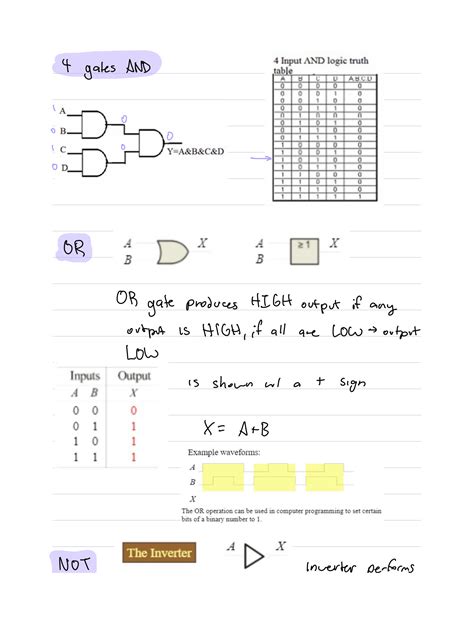 4 gates AND
4 Input AND logic truth
table
A B C D A.B.C.D
0 0 0 0 0
0 0 0 1 0
0 0 1 0 0
0 0 1 1 0
0 1 0 0 0
0 1 0 1 0
0 1 1 0 0
0 1 1 1 0
1 0 0 0 0
1 0 0 1 0
1 0 1 0 0
1 0 1 1 0
1 1 0 0 0
1 1 0 1 0
1 1 1 0 0
1 1 1 1 1
1 A
0
0 B
0
1 C
0
Y=A&B&C&D
0 D
OR
A X
B
A ≥1 X
B
OR gate produces HIGH output if any
output is HIGH, if all are LOW → output
LOW
Inputs Output
A B X
0 0 0
0 1 1
1 0 1
1 1 1
is shown w/ a + sign
X = A+B
Example waveforms:
A
B
X
The OR operation can be used in computer programming to set certain
bits of a binary number to 1.
NOT
The Inverter
A X
Inverter performs